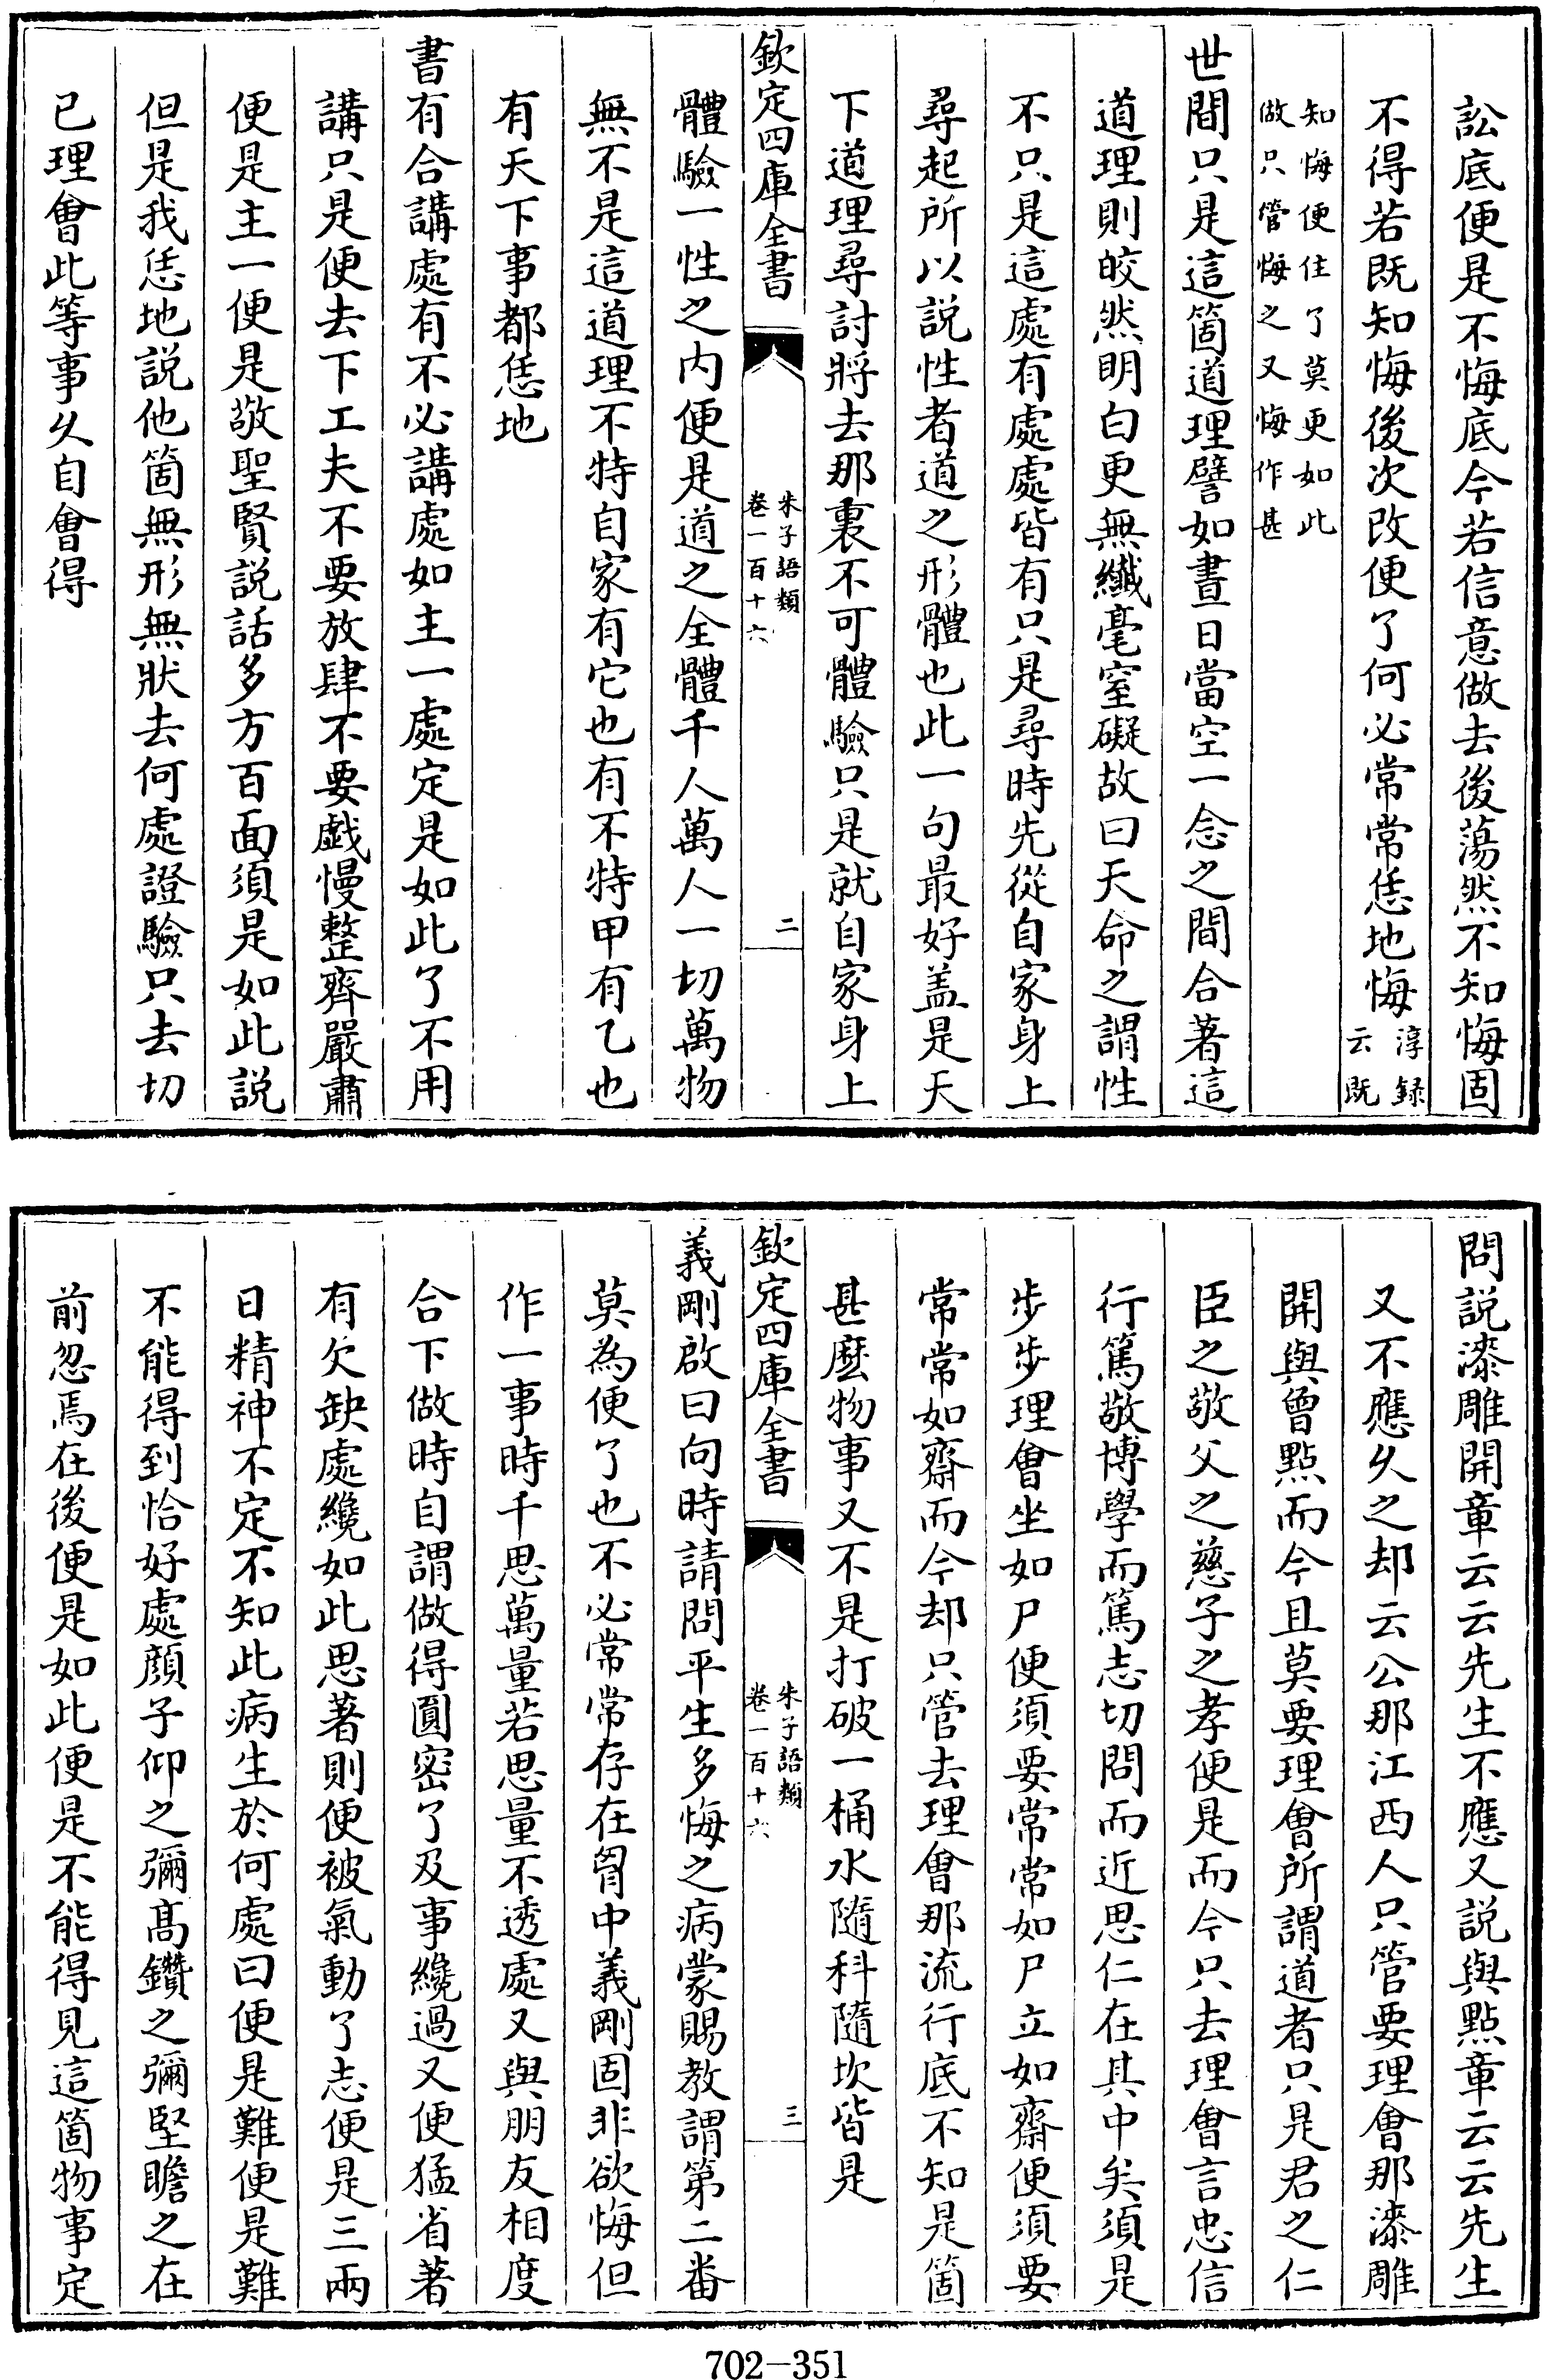 訟底便是不悔底今若信意做去後蕩然不知悔固
不得若既知悔後次改便了何必常常恁地悔淳録云既
知悔便住了莫更如此做只管悔之又悔作甚
世間只是這箇道理譬如晝日當空一念之間合著這
道理則皎然明白更無纖毫窒礙故曰天命之謂性
不只是這處有處處皆有只是尋時先從自家身上
尋起所以說性者道之形體也此一句最好盖是天
下道理尋討將去那裏不可體驗只是就自家身上
欽定四庫全書
朱子語類
卷一百十六
二
體驗一性之内便是道之全體千人萬人一切萬物
無不是這道理不特自家有它也有不特甲有乙也
有天下事都恁地
書有合講處有不必講處如主一處定是如此了不用
講只是便去下工夫不要放肆不要戯慢整齊嚴肅
便是主一便是敬聖賢說話多方百面須是如此說
但是我恁地說他箇無形無狀去何處證驗只去切
已理會此等事久自會得
問說漆雕開章云云先生不應又說與點章云云先生
又不應久之却云公那江西人只管要理會那漆雕
開與曾點而今且莫要理會所謂道者只是君之仁
臣之敬父之慈子之孝便是而今只去理會言忠信
行篤敬博學而篤志切問而近思仁在其中矣須是
步步理會坐如尸便須要常常如尸立如齋便須要
常常如齋而今却只管去理會那流行底不知是箇
甚麽物事又不是打破一桶水隨科隨坎皆是
欽定四庫全書
朱子語類
卷一百十六
三
義剛啟曰向時請問平生多悔之病蒙賜教謂第二番
莫為便了也不必常常存在胷中義剛固非欲悔但
作一事時千思萬量若思量不透處又與朋友相度
合下做時自謂做得圓密了及事纔過又便猛省著
有欠缺處纔如此思著則便被氣動了志便是三兩
日精神不定不知此病生於何處曰便是難便是難
不能得到恰好處顔子仰之彌髙鑽之彌堅瞻之在
前忽焉在後便是如此便是不能得見這箇物事定
702-351